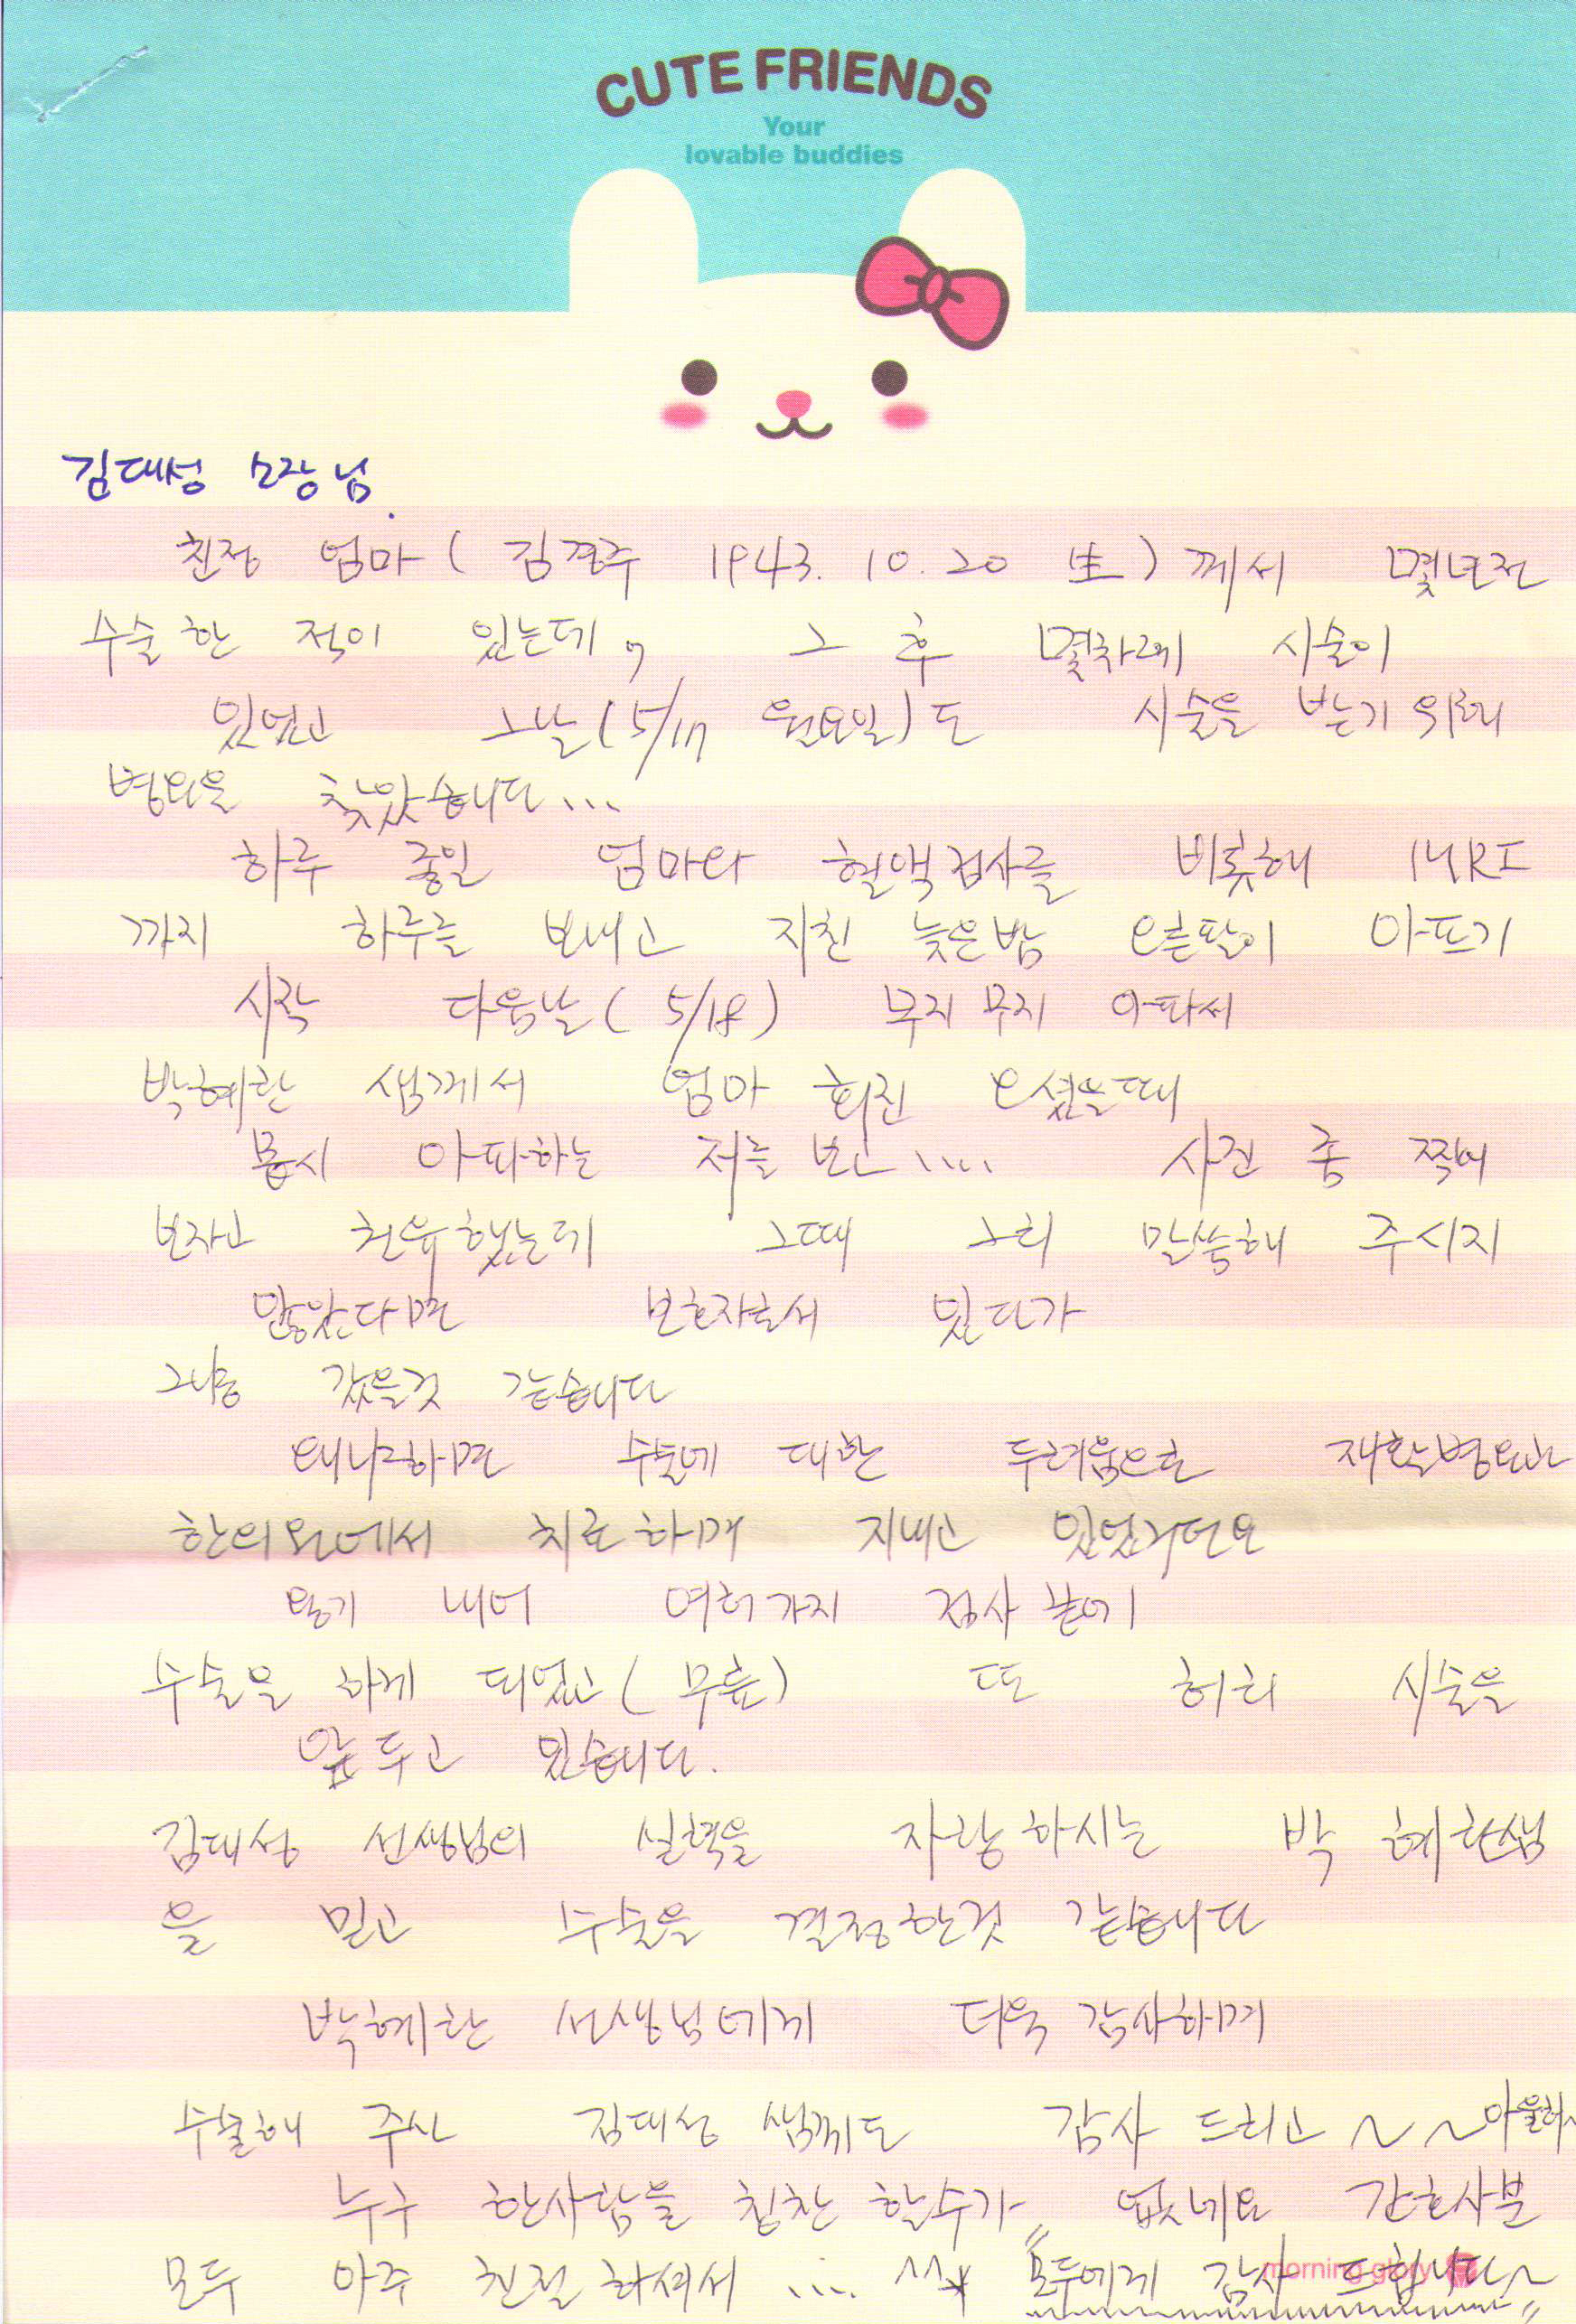 CUTE FRIENDS
Your
lovable buddies
김대성 소장님.
친정 엄마( 김경주 1943. 10. 20 生) 께서 몇년전
수술한 적이 있는데, 그 후 몇차례 시술이
있었고 그날(5/17 월요일)도 시술을 받기 위해
병원을 찾았습니다...
하루 종일 엄마와 혈액검사를 비롯해 MRI
까지 하루를 보내고 지친 늦은밤 오른팔이 아프기
시작 다음날( 5/18) 무지무지 아파서
박혜란 샘께서 엄마 회진 오셨을때
몹시 아파하는 저를 보고.... 사진 좀 찍어
보자고 권유했는데 그때 그리 말씀해 주시지
않았다면 보호자로서 있다가
그냥 갔을것 같습니다
왜냐하면 수술에 대한 두려움으로 재활병원과
한의원에서 치료하며 지내고 있었거던요
용기 내어 여러가지 검사 끝에
수술을 하게 되었고( 무릎) 또 허리 시술을
앞두고 있습니다.
김대성 선생님의 실력을 자랑하시는 박 혜란샘
을 믿고 수술을 결정한것 같습니다
박혜란 선생님에게 더욱 감사하며
수술해 주신 김대성 샘께도 감사 드리고 ~ ~아울러~
누구 한사람을 칭찬 할수가 없네요 간호사분
모두 아주 친절하셔서 .... ^^* "모두에게 감사 드립니다~"
morning glory